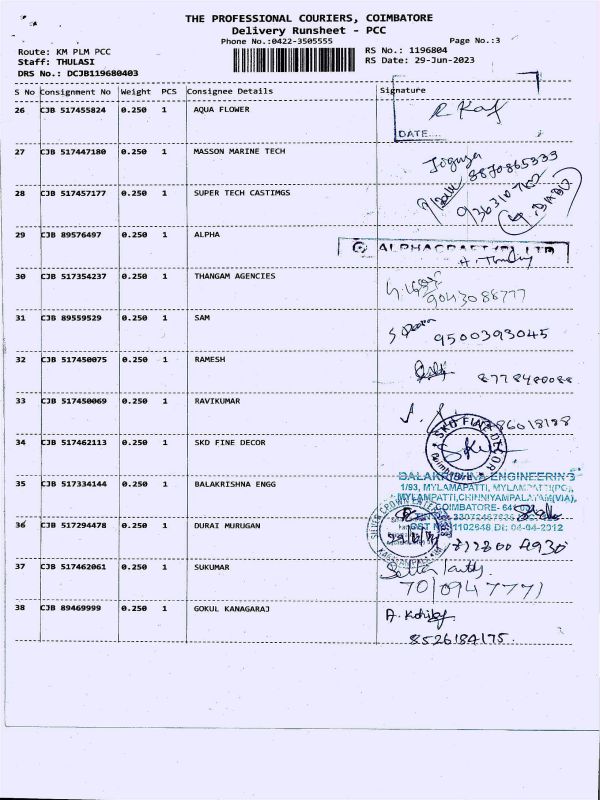 THE PROFESSIONAL COURIERS, COIMBATORE
Delivery Runsheet - PCC
Phone No.:0422-3505555
Page No.:3
Route: KM PLM PCC
RS No.: 1196804
Staff: THULASI
RS Date: 29-Jun-2023
DRS No.: DCJB119680403
S No Consignment No Weight PCS Consignee Details Signature
26 CJB 517455824 0.250 1 AQUA FLOWER
DATE....
27 CJB 517447180 0.250 1 MASSON MARINE TECH
8870865333
28 CJB 517457177 0.250 1 SUPER TECH CASTIMGS
29 CJB 89576497 0.250 1 ALPHA
30 CJB 517354237 0.250 1 THANGAM AGENCIES
9043088777
31 CJB 89559529 0.250 1 SAM
9500393045
32 CJB 517450075 0.250 1 RAMESH
8778480088
33 CJB 517450069 0.250 1 RAVIKUMAR
34 CJB 517462113 0.250 1 SKD FINE DECOR
SKD FINE DECOR
35 CJB 517334144 0.250 1 BALAKRISHNA ENGG
BALAKRISHNA ENGINEERING
1/93, MYLAMAPATTI, MYLAMPATTI(PO),
MYLAMPATTI,CHINNIYAMPALAYAM(VIA),
COIMBATORE-
36 CJB 517294478 0.250 1 DURAI MURUGAN
37 CJB 517462061 0.250 1 SUKUMAR
38 CJB 89469999 0.250 1 GOKUL KANAGARAJ
8526184175